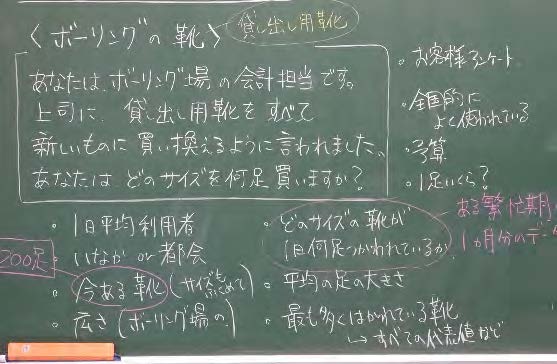 〈ボーリングの靴〉
貸し出し用靴
あなたは、ボーリング場の会計担当です。
上司に、貸し出し用靴をすべて
新しいものに買い換えるように言われました。
あなたはどのサイズを何足買いますか？
・お客様アンケート
・全国的に
よく使われている
・予算
・1足いくら？
・1日平均利用者
・いなか or 都会
200足
・今ある靴(サイズもふくめて)
・広さ(ボーリング場の)
・どのサイズの靴が
1日何足つかわれているか
ある繁忙期
1ヵ月分のデータ
・平均の足の大きさ
・最も多くはかれている靴
→すべての代表値など